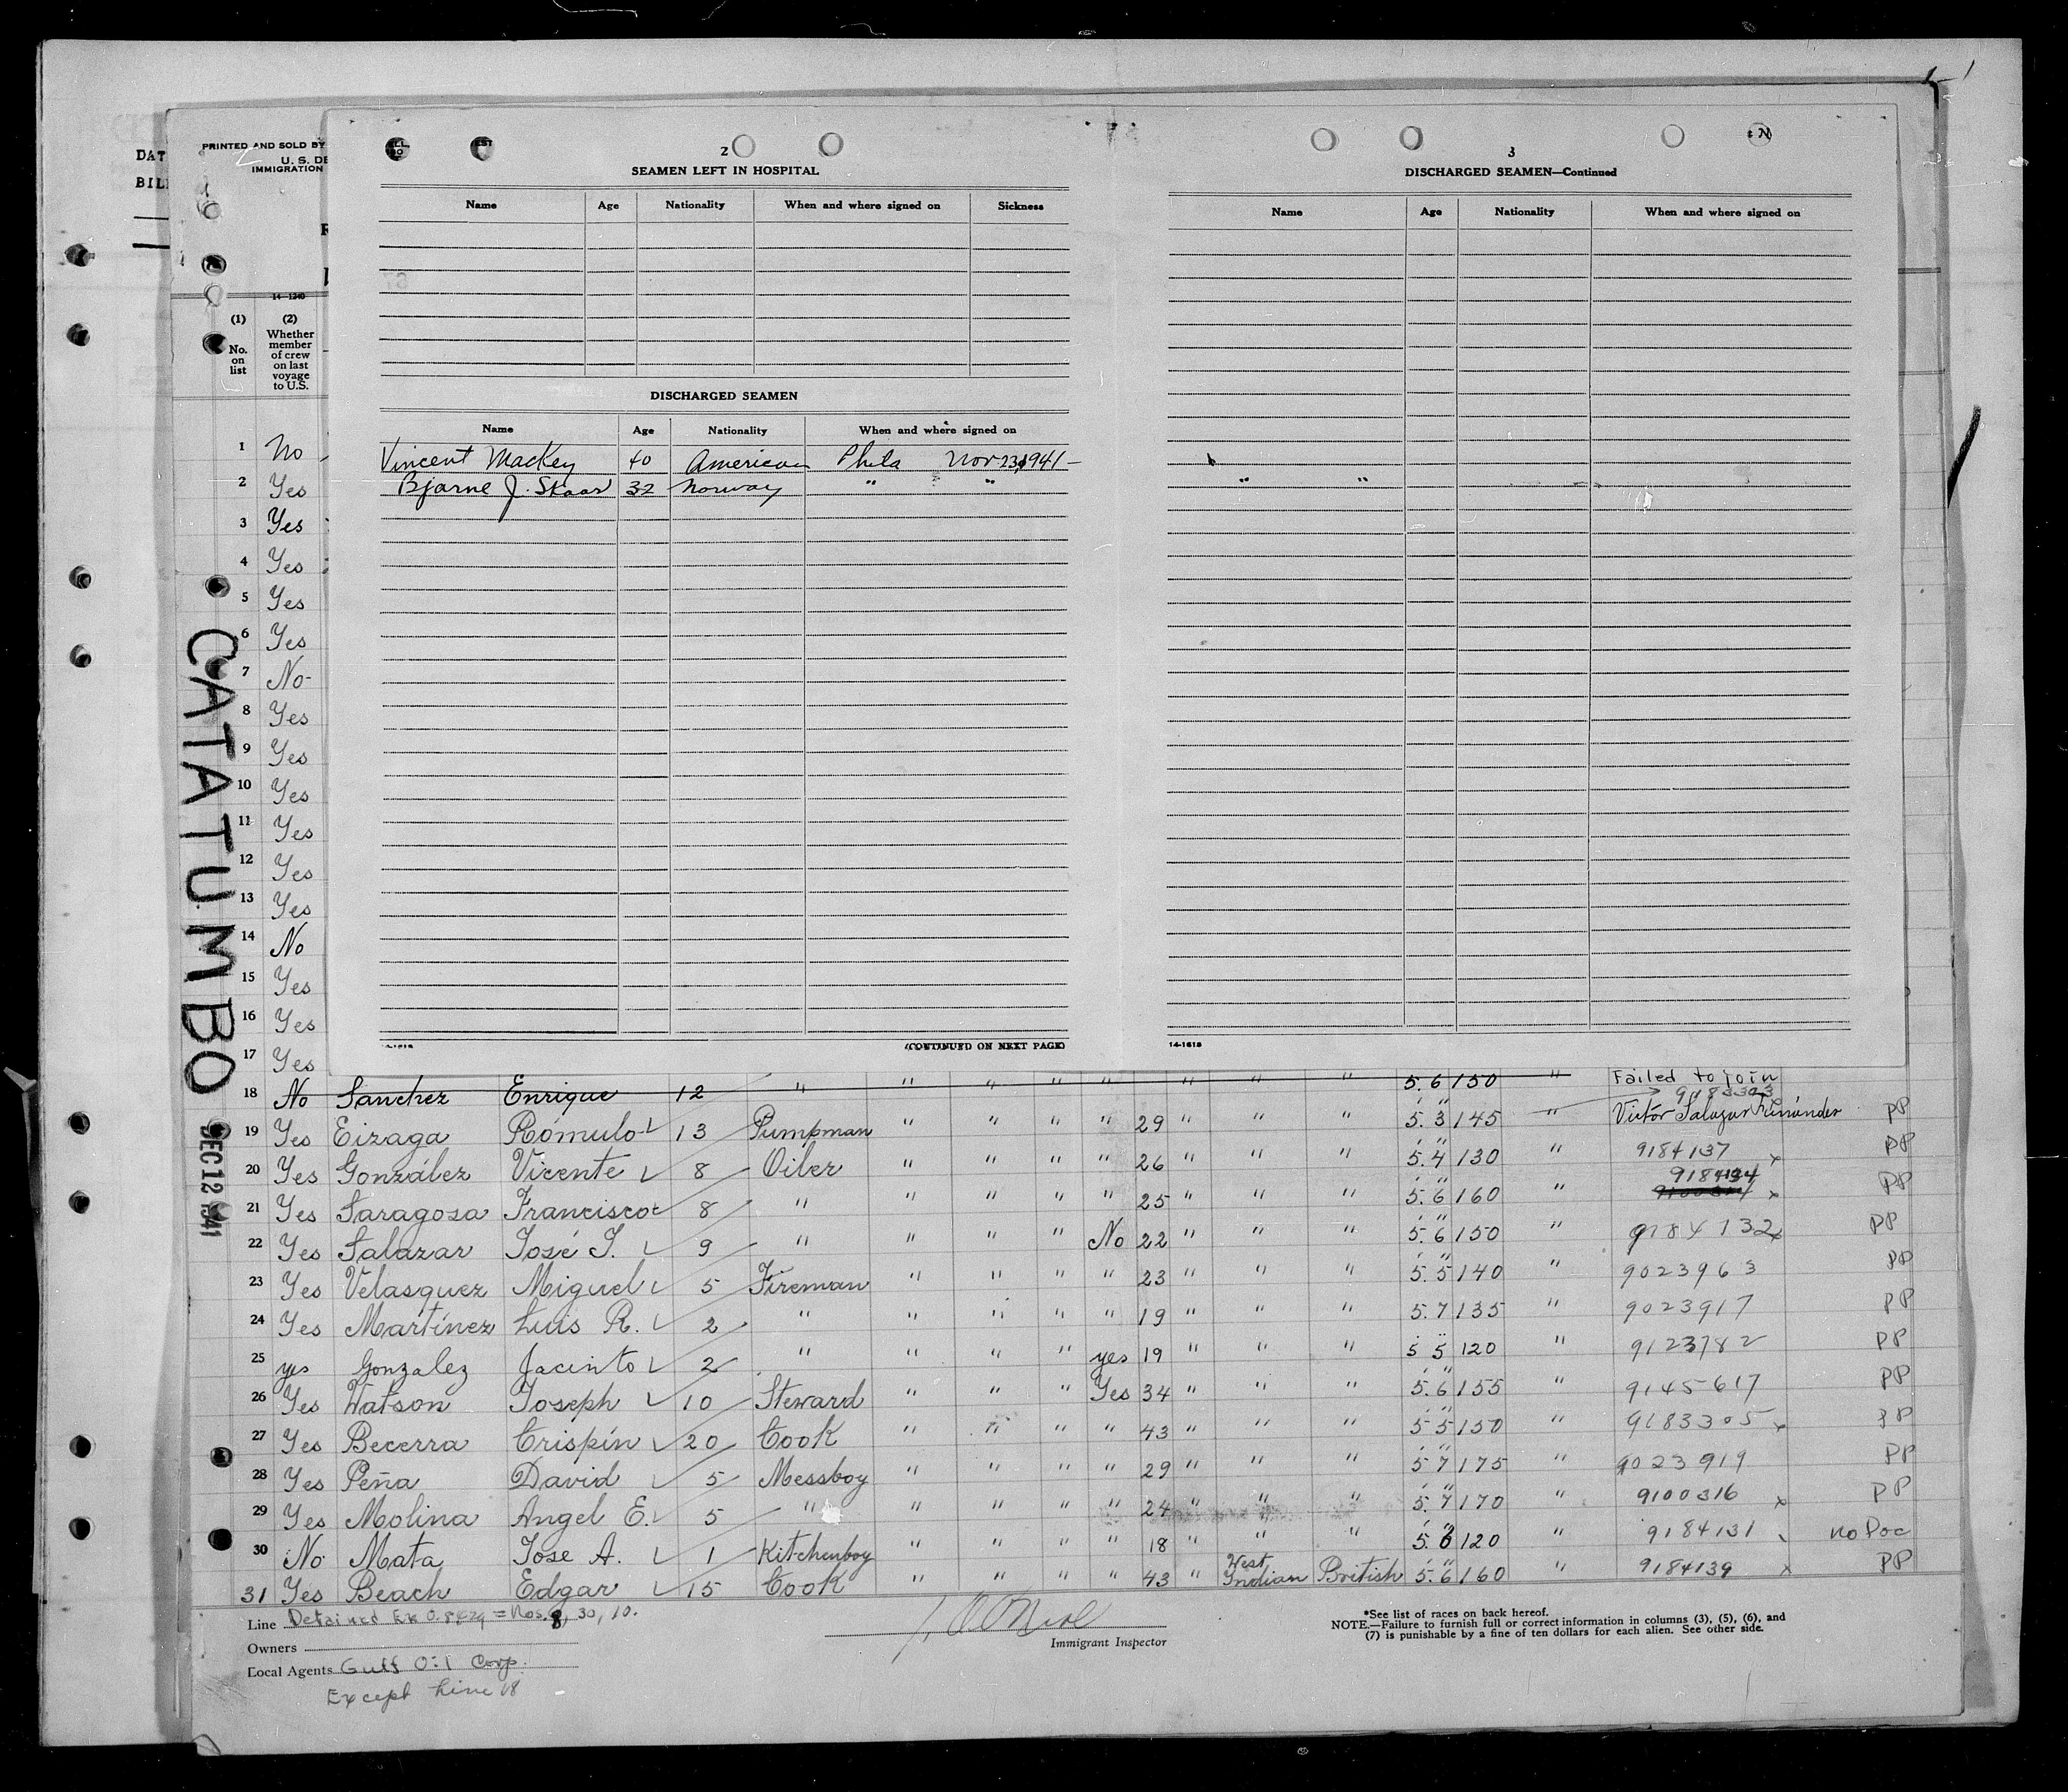 DAT
BIL
PRINTED AND SOLD BY
U. S. DE
IMMIGRATION
14-1240
(1)
No.
on
list
(2)
Whether
member
of crew
on last
voyage
to U.S.
2
SEAMEN LEFT IN HOSPITAL
Name Age Nationality When and where signed on Sickness
DISCHARGED SEAMEN
Name Age Nationality When and where signed on
Vincent Mackey 40 American Phila Nov 23, 1941
Bjarne J. Skaar 32 Norway " "
(CONTINUED ON NEXT PAGE)
3
DISCHARGED SEAMEN—Continued
Name Age Nationality When and where signed on
" "
14-1618
1 No
2 Yes
3 Yes
4 Yes
5 Yes
6 Yes
7 No
8 Yes
9 Yes
10 Yes
11 Yes
12 Yes
13 Yes
14 No
15 Yes
16 Yes
17 Yes
18 No Sanchez Enrique 12 " " " " " " " " 5.6 150 " Failed to join
9183303
19 Yes Eizaga Rómulo 13 Pumpman " " " " 29 " " " 5.3 145 " Victor Salazar Fernández PP
20 Yes González Vicente 8 Oiler " " " " 26 " " " 5.4 130 " 9184137 x PP
9184134
21 Yes Saragosa Francisco 8 " " " " " 25 " " " 5.6 160 " x PP
22 Yes Salazar José J. 9 " " " " No 22 " " " 5.6 150 " 9184132 x PP
23 Yes Velasquez Miguel 5 Fireman " " " " 23 " " " 5.5 140 " 9023963 PP
24 Yes Martínez Luis R. 2 " " " " " 19 " " " 5.7 135 " 9023917 PP
25 yes Gonzalez Jacinto 2 " " " " yes 19 " " " 5 5 120 " 9123782 PP
26 Yes Watson Joseph 10 Steward " " " Yes 34 " " " 5.6 155 " 9145617 PP
27 Yes Becerra Crispín 20 Cook " " " " 43 " " " 5 5 150 " 9183305 x PP
28 Yes Peña David 5 Messboy " " " " 29 " " " 5 7 175 " 9023919 PP
29 Yes Molina Angel E. 5 " " " " " 24 " " " 5.7 170 " 9100316 x PP
30 No Mata Jose A. 1 Kitchenboy " " " " 18 " " " 5.6 120 " 9184131 no Doc
31 Yes Beach Edgar 15 Cook " " " " 43 " West Indian British 5.6 160 " 9184139 x PP
CATATUMBO
DEC 12 1941
Line Detained Ex O. 8429 = Nos. 8, 30, 10.
Owners
Local Agents Gulf Oil Corp.
Except Line 18
J. O'Neil
Immigrant Inspector
*See list of races on back hereof.
NOTE.—Failure to furnish full or correct information in columns (3), (5), (6), and
(7) is punishable by a fine of ten dollars for each alien. See other side.